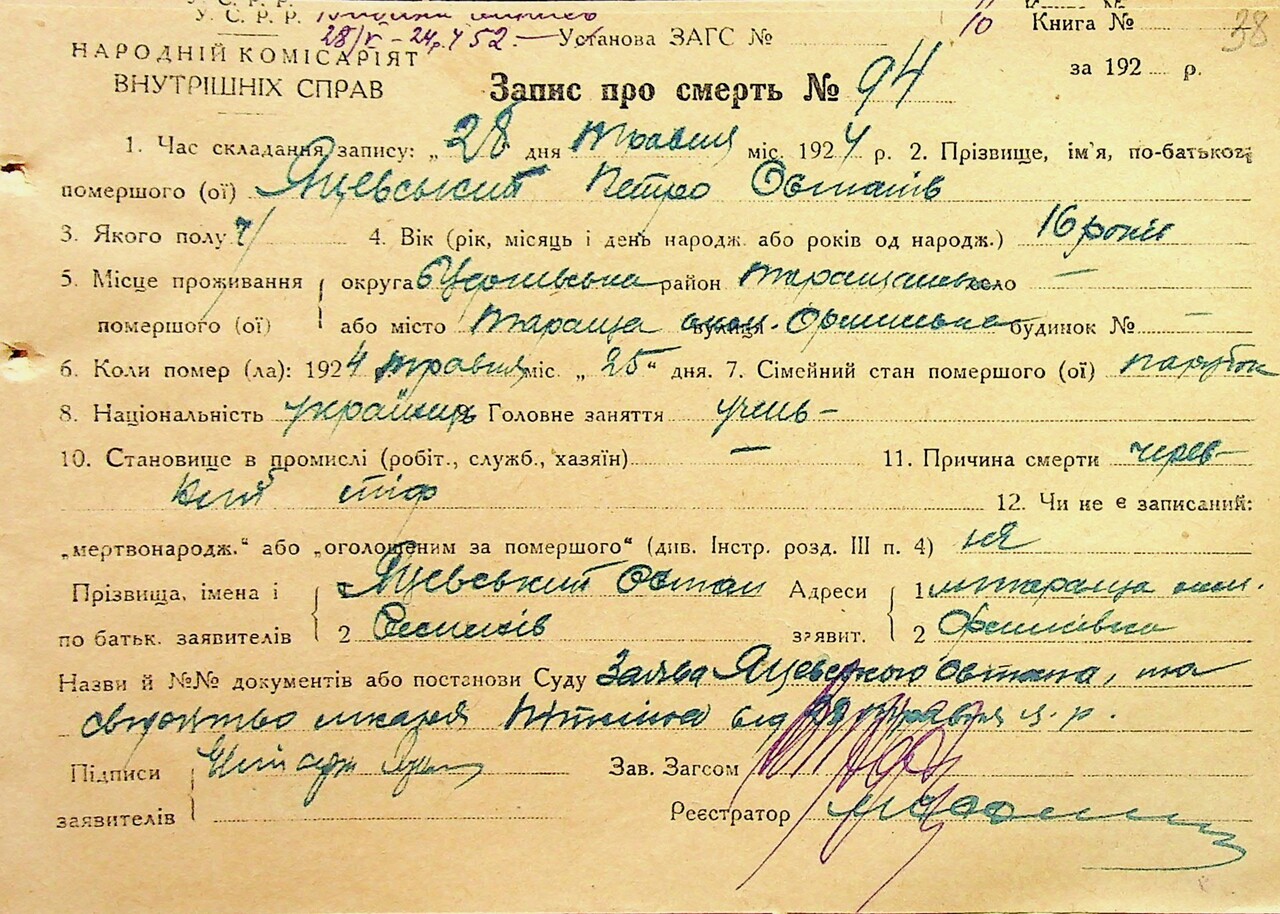 У. С. Р. Р.
28/V - 24р. Установа ЗАГС № 10 Книга № 38
НАРОДНІЙ КОМІСАРІЯТ
ВНУТРІШНІХ СПРАВ
за 192 р.
Запис про смерть № 94
1. Час складання запису: „ 28 дня травня міс. 1924 р. 2. Прізвище, ім'я, по-батькові
помершого (ої) Яцевський Петро Остапів
3. Якого полу ч/ 4. Вік (рік, місяць і день народж. або років од народж.) 16 років
5. Місце проживання округа Б Церківська район Таращанський село —
помершого (ої) або місто Тараща вулиця будинок № —
6. Коли помер (ла): 1924 травня міс. „ 25 “ дня. 7. Сімейний стан помершого (ої) парубок
8. Національність українець Головне заняття учень -
10. Становище в промислі (робіт., служб., хазяїн) — 11. Причина смерти черев-
ний тіф 12. Чи не є записаний:
„мертвонародж.“ або „оголошеним за помершого“ (див. Інстр. розд. III п. 4) ні
Прізвища, імена і 1 Яцевський Остап Адреси 1 м Тараща
по батьк. заявителів 2 заявит. 2
Назви й №№ документів або постанови Суду Заява Яцевського Остапа, та
свідоцтво лікаря від травня ц. р.
Підписи Зав. Загсом
заявителів Реєстратор